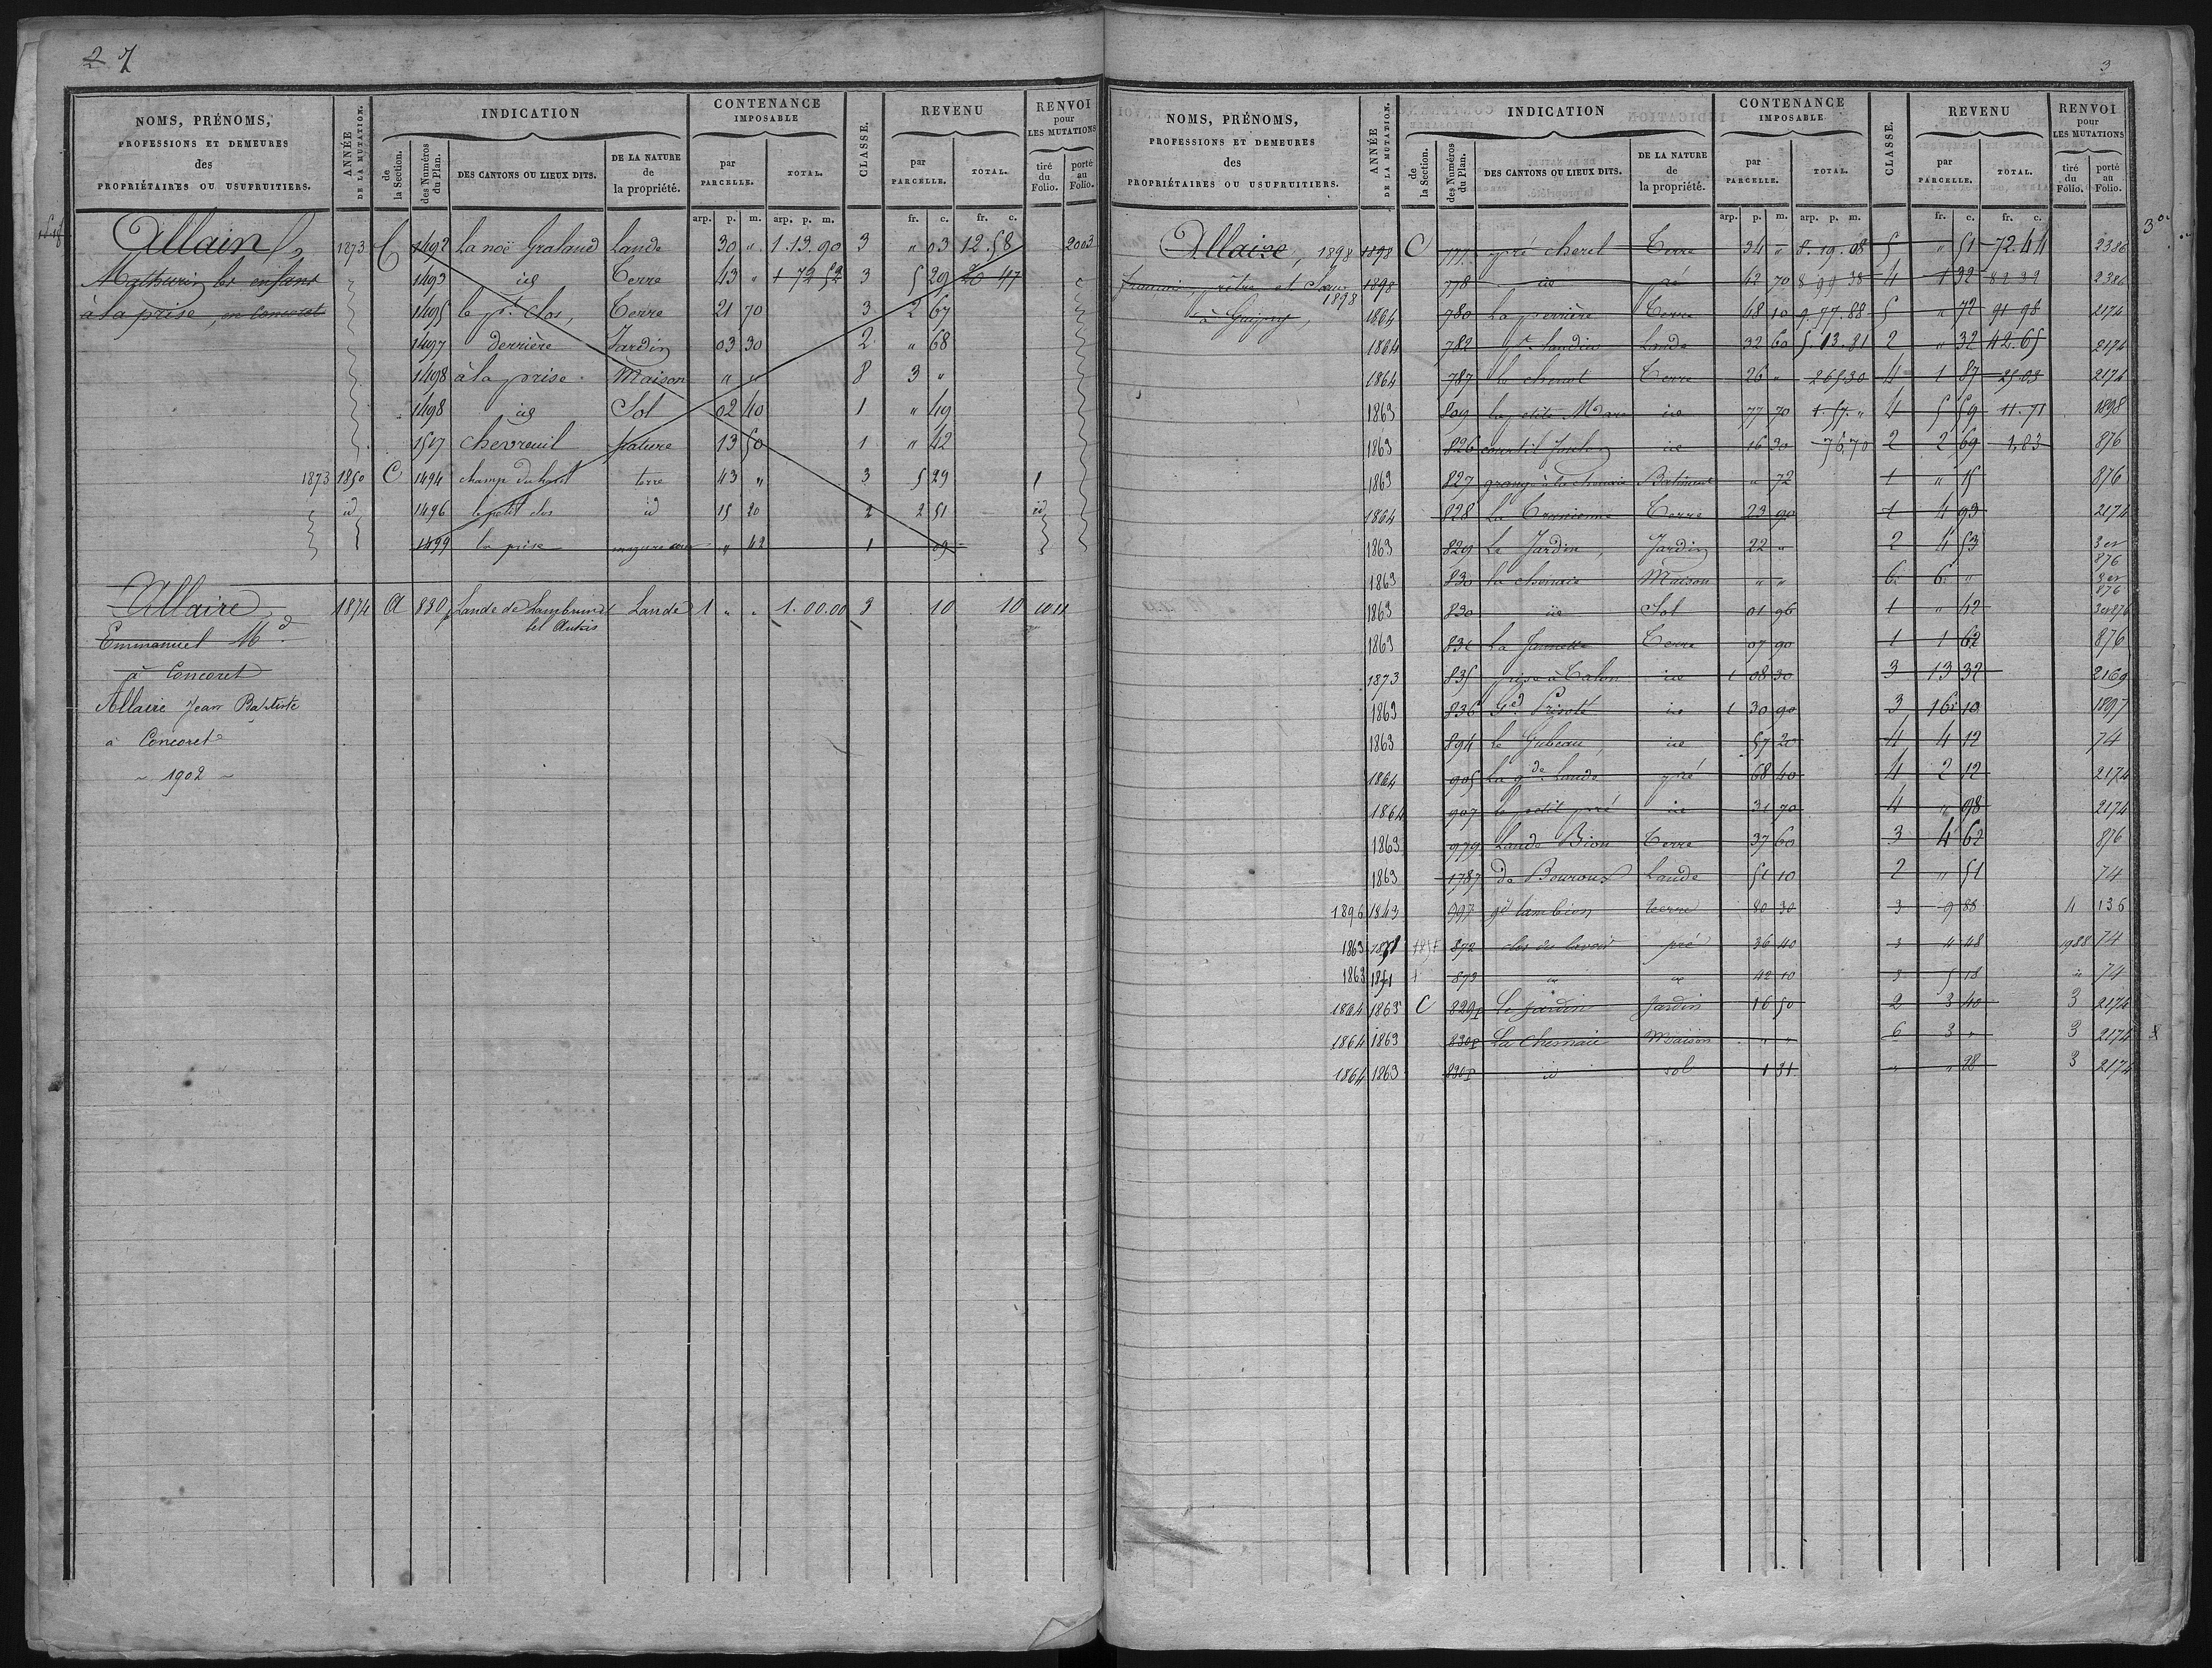 2
NOMS, PRÉNOMS, PROFESSIONS ET DEMEURES des PROPRIÉTAIRES OU USUFRUITIERS. ANNÉE DE LA MUTATION. INDICATION de la Section. des Numéros du Plan. DES CANTONS OU LIEUX DITS. DE LA NATURE de la propriété. CONTENANCE IMPOSABLE par PARCELLE. TOTAL. CLASSE. REVENU par PARCELLE. TOTAL. RENVOI pour LES MUTATIONS tiré du Folio. porté au Folio.
arp. p. m. arp. p. m. fr. c. fr. c.
Allain, 1873 C 1492 La noë Gralaud Lande 30 " 1.13.90 3 " 03 12.58 2003
Mathurin les enfans 1493 id Terre 43 " 1 72 52 3 5 29 20 47
à la prise, en Concoret 1495 le pt. Clos, Terre 21 70 3 2 67
1497 derrière Jardin 03 30 2 " 68
1498 à la prise Maison " " 8 3 "
1498 id Sol 02 40 1 " 49
1517 chevreuil pature 13 50 1 " 42
1873 1850 C 1494 champ du haut terre 43 " 3 5 29 1
id 1496 le petit clos id 15 20 2 2 51 id
1499 la prise mazure " 42 1 09
Allaire 1874 A 830 Lande de Lambrun Lande 1 " " 1.00.00 3 10 10 1011
Emmanuel Md
à Concoret
Allaire Jean Baptiste
à Concoret
~ 1902 ~
3
NOMS, PRÉNOMS, PROFESSIONS ET DEMEURES des PROPRIÉTAIRES OU USUFRUITIERS. ANNÉE DE LA MUTATION. INDICATION de la Section. des Numéros du Plan. DES CANTONS OU LIEUX DITS. DE LA NATURE de la propriété. CONTENANCE IMPOSABLE par PARCELLE. TOTAL. CLASSE. REVENU par PARCELLE. TOTAL. RENVOI pour LES MUTATIONS tiré du Folio. porté au Folio.
arp. p. m. arp. p. m. fr. c. fr. c.
Allaire, 1898 1898 C 777 pré cherel Terre 34 " 8.19.08 5 " 51 72.44 2386
prêtre et 1898 1898 778 id pré 42 70 8 99 38 4 1 32 82 32 2386
à Guipry, 1864 780 La perrière Terre 48 10 9.77.88 5 " 72 91 98 2174
1864 782 Lande 32 60 5.13.81 2 " 32 42.65 2174
1864 787 le chenot Terre 26 " 2 65 30 4 1 87 25.03 2174
1863 809 la petite Mare id 77 70 1.57 " 4 5 59 11.71 1898
1863 826 courtil id 16 30 76.70 2 2 69 1,83 876
1863 827 grange à la chenaie Batiment " 72 1 " 15 876
1864 828 Terre 23 90 1 4 93 2174
1863 829 Le Jardin, Jardin 22 " 2 4 53 3 et 876
1863 830 la chenaie Maison " " 6 6 " 3 et 876
1863 830 id Sol 01 96 1 " 42 3 et 876
1863 831 La Terre 07 90 1 1 62 876
1873 835 prise à Talon id 1 08 30 3 13 32 2169
1863 836 Gd. id 1 30 90 3 16 10 1897
1863 894 Le id 57 20 4 4 12 74
1864 905 La gde. Lande pré 68 40 4 2 12 2174
1864 907 le petit pré id 31 70 4 " 98 2174
1863 979 Lande Bion Terre 37 60 3 4 62 876
1863 1787 de Bouroux Lande 51 10 2 " 51 74
1896 1843 997 gd lambion terre 80 30 3 9 88 4 136
1863 1851 872 clos du lavoir pré 36 40 3 4 48 1988 74
1863 1851 873 " " 42 10 3 5 18 " 74
1864 1863 C 829p Le Jardin Jardin 16 50 2 3 40 3 2174
1864 1863 830p La Chenaie Maison " " 6 3 " 3 2174
1864 1863 830p id sol 1 31 " " 28 3 2174